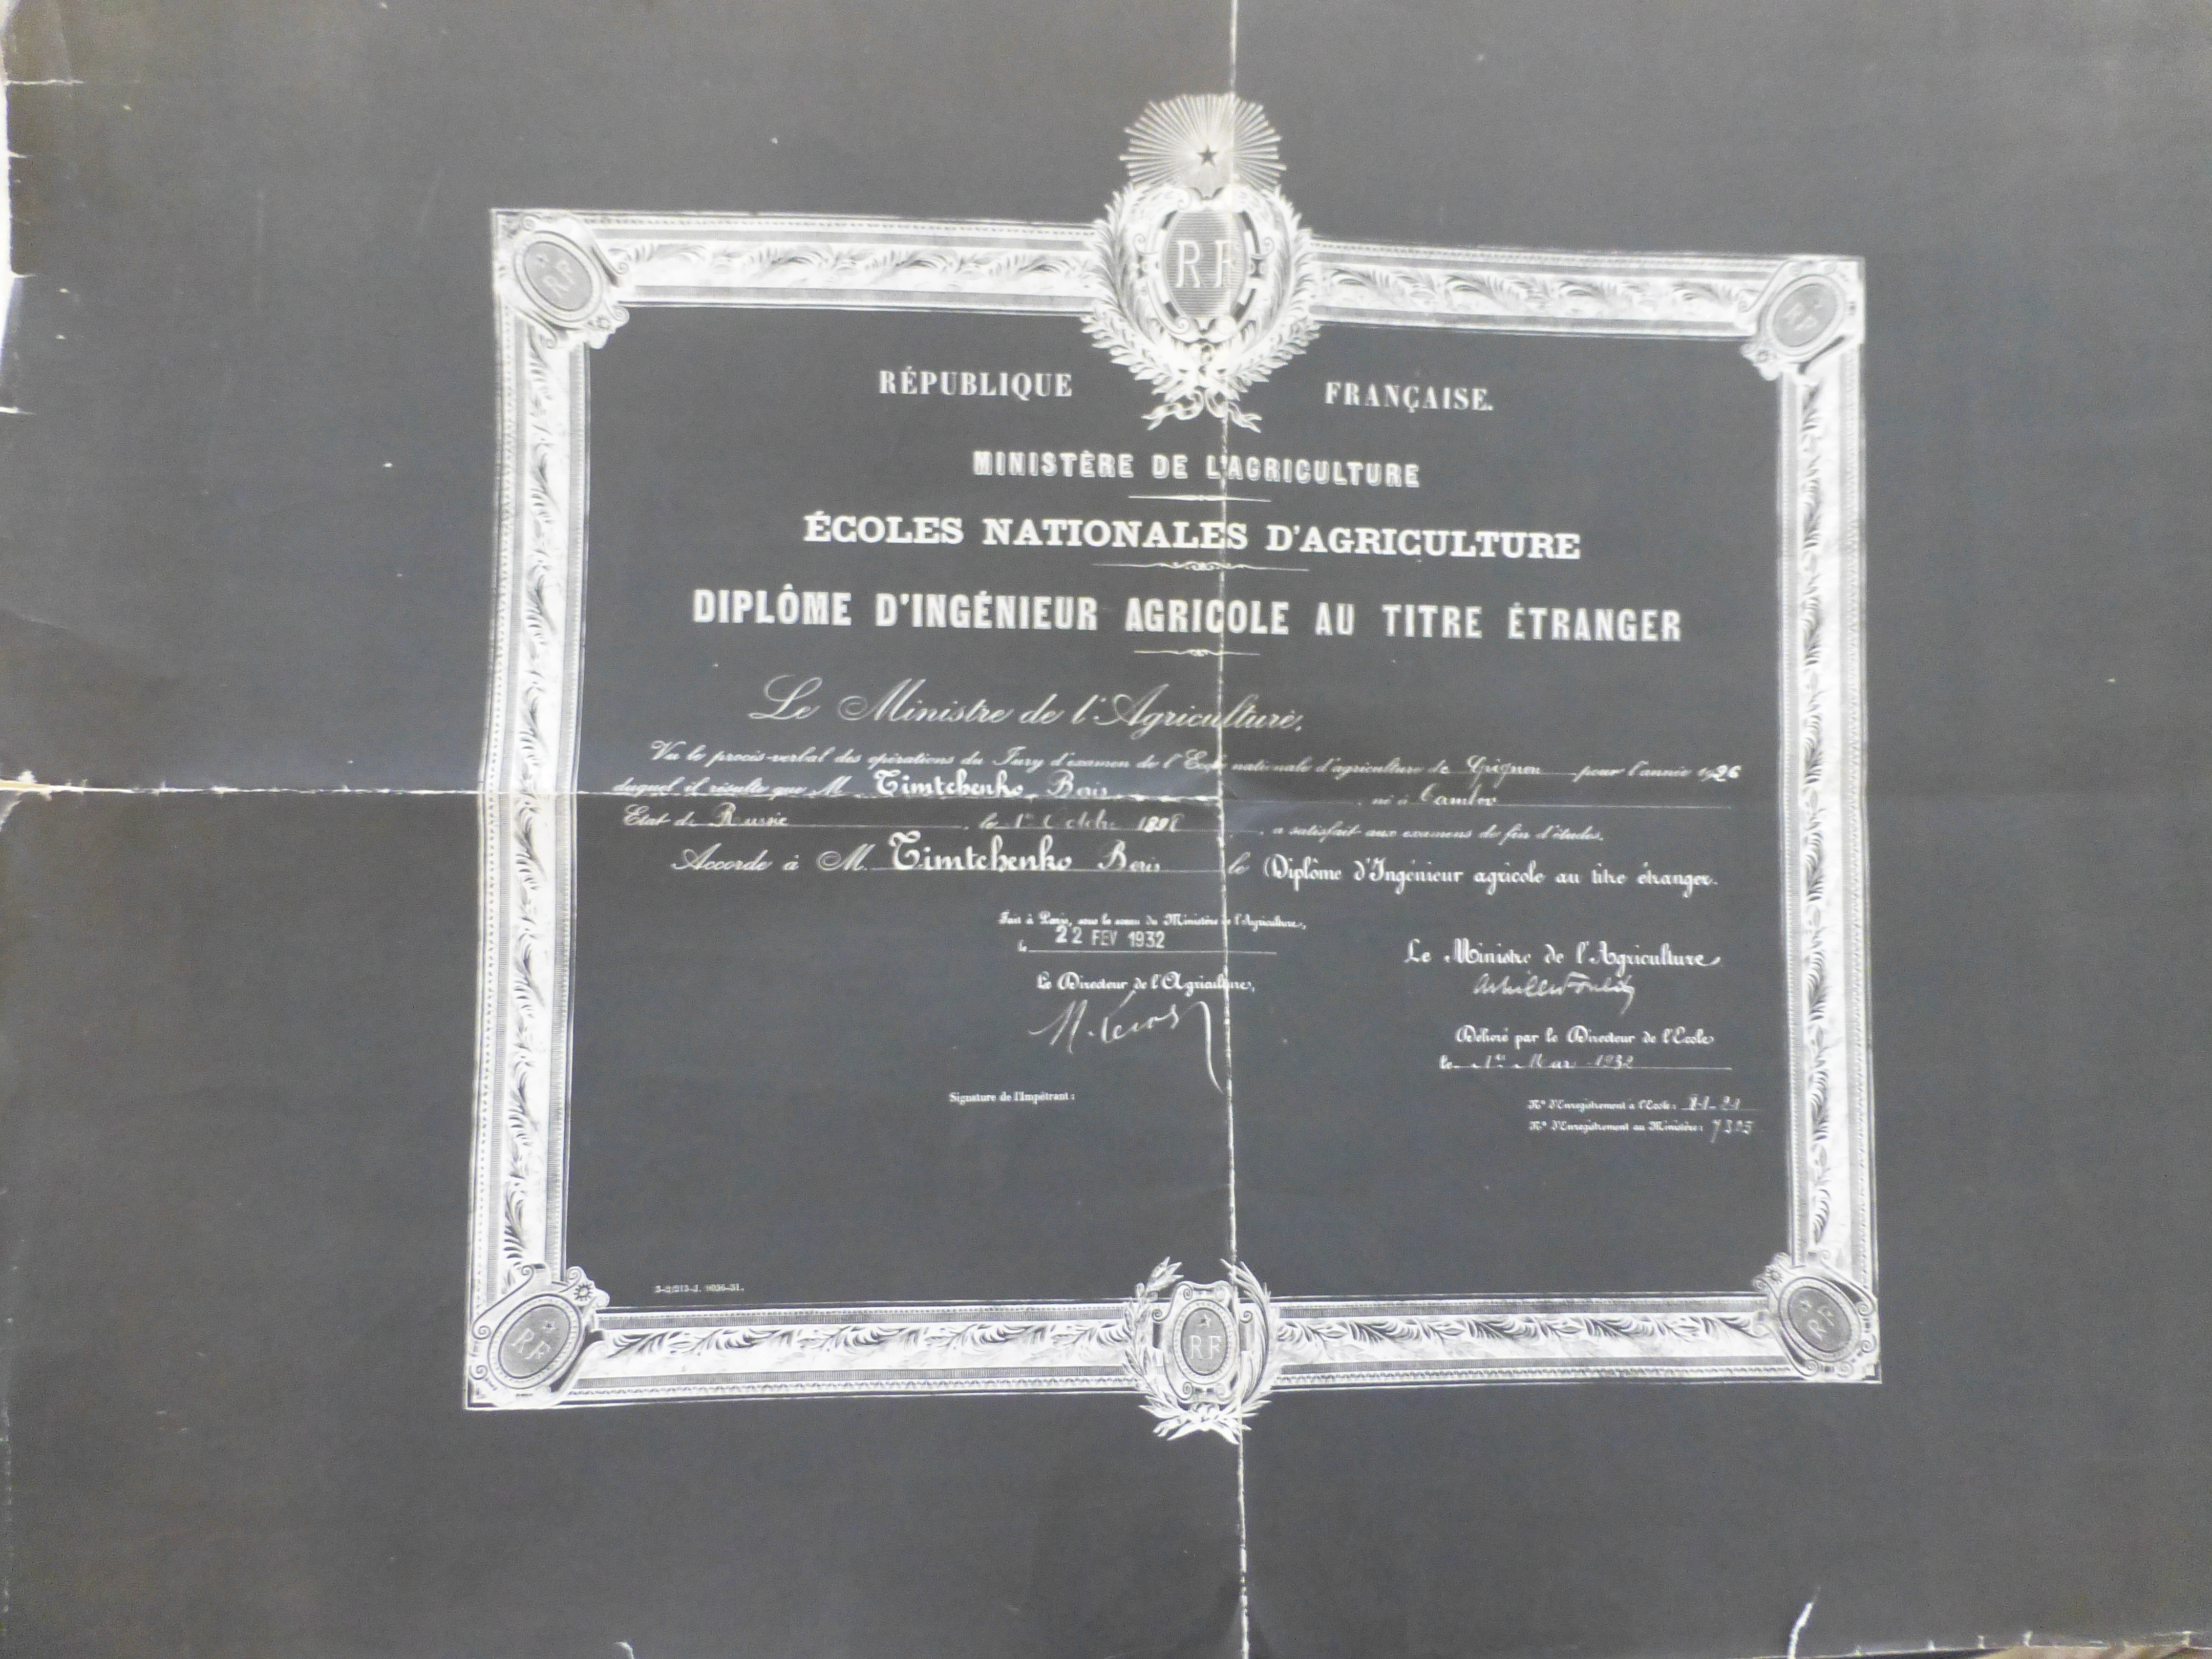 RF
RF
RF
RÉPUBLIQUE FRANÇAISE.
MINISTÈRE DE L'AGRICULTURE
ÉCOLES NATIONALES D'AGRICULTURE
DIPLÔME D'INGÉNIEUR AGRICOLE AU TITRE ÉTRANGER
Le Ministre de l'Agriculture,
Vu le procès-verbal des opérations du Jury d'examen de l'Ecole nationale d'agriculture de Grignon pour l'année 1926
duquel il résulte que M. Timtchenko Boris, né à Tambov
Etat de Russie, le 1er Octobre, a satisfait aux examens de fin d'études,
Accorde à M. Timtchenko Boris le Diplôme d'Ingénieur agricole au titre étranger.
Fait à Paris, sous le sceau du Ministère de l'Agriculture,
le 22 FEV 1932
Le Directeur de l'Agriculture,
Le Ministre de l'Agriculture
Délivré par le Directeur de l'Ecole
le 1er Mars 1932
Signature de l'Impétrant:
N° d'Enregistrement à l'Ecole:
N° d'Enregistrement au Ministère:
RF
RF
RF